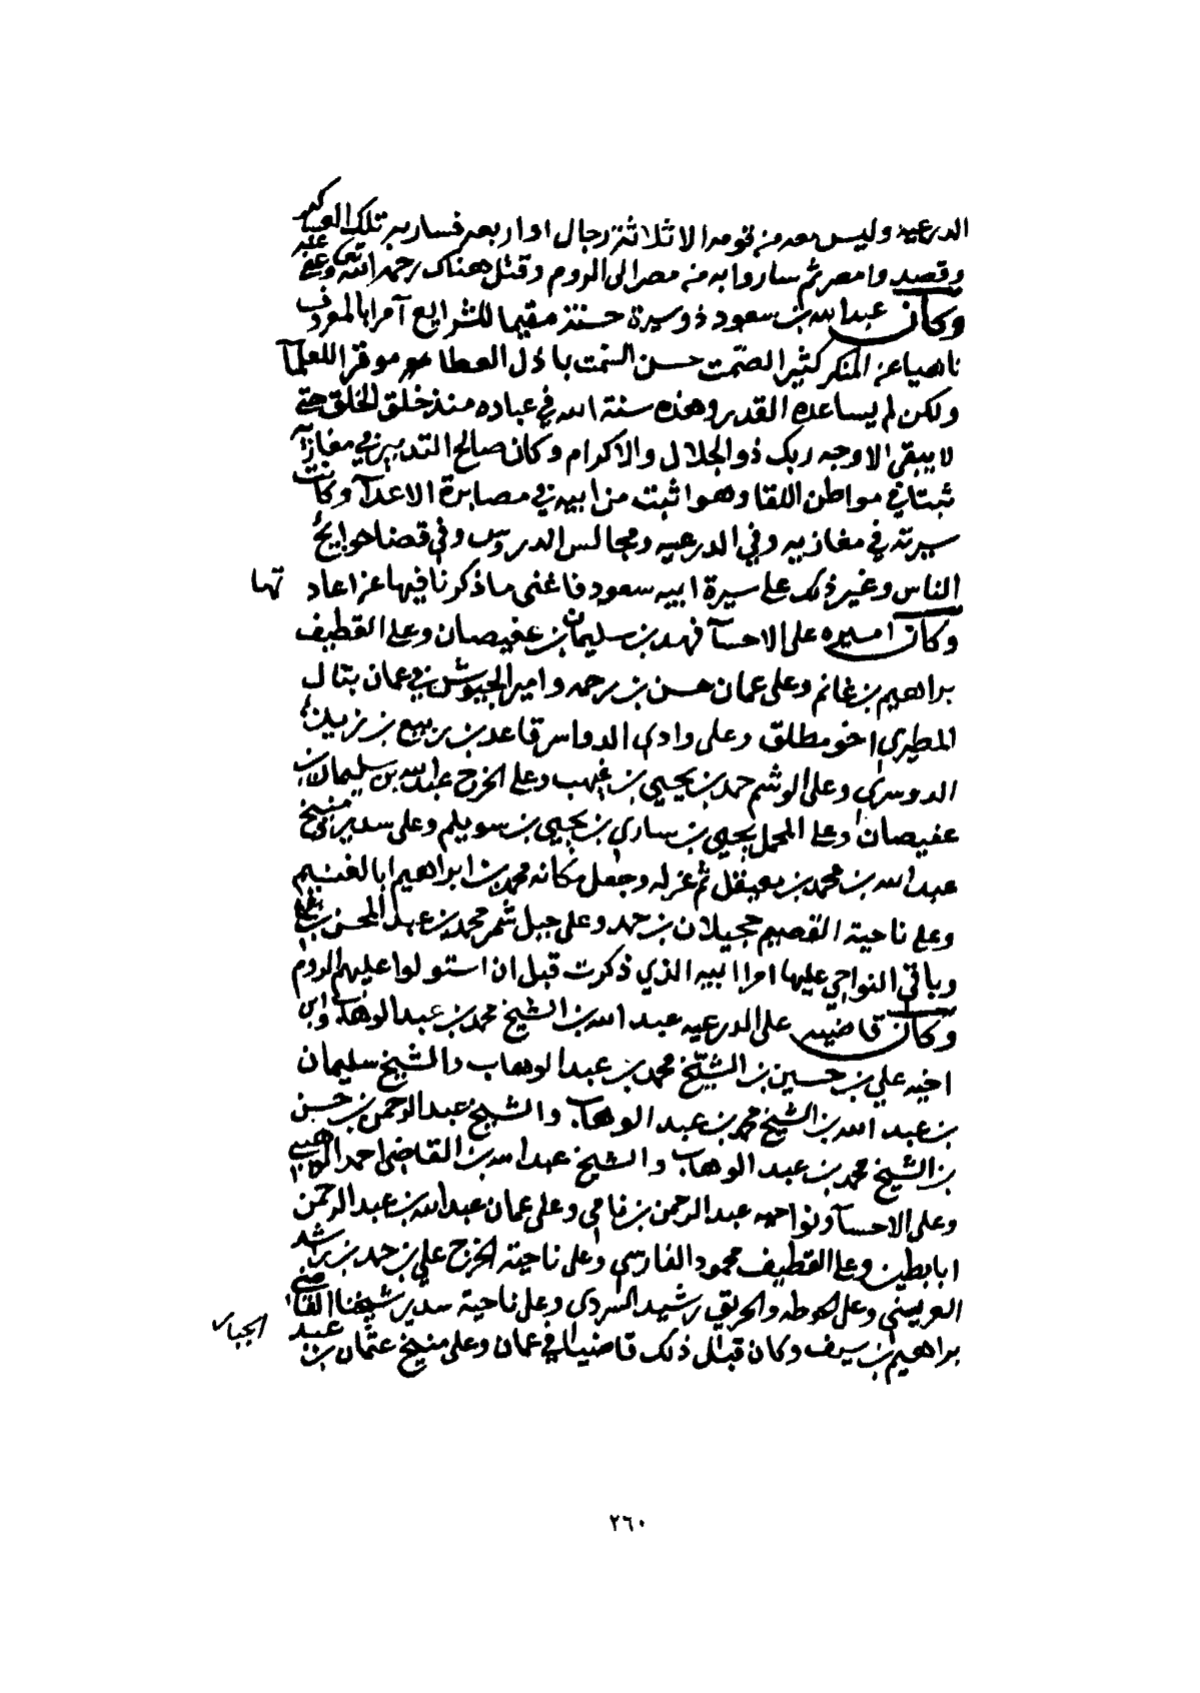 الدرعيه وليس معه من قومه الا ثلاثة رجال او اربعه فسار به تلك العساكر
وقصدوا مصر ثم ساروا به من مصر الى الروم وقتل هناك رحمه الله تعالى وعفى عنه
وكان عبدالله بن سعود ذو سيرة حسنة مقيما للشرايع آمرا بالمعروف
ناهيا عن المنكر كثير الصمت حسن السمت باذل العطا موقر اللعلمآ
ولكن لم يساعده القدر وهذه سنة الله في عباده منذ خلق الخلق حتى
لا يبقى الا وجه ربك ذو الجلال والاكرام وكان صالح التدبير في مغازيه
ثبتا في مواطن اللقا وهو اثبت من ابيه في مصابرة الاعدآ وكانت
سيرته في مغازيه وفي الدرعيه ومجالس الدروس وفي قضا حوايج
الناس وغير ذلك على سيرة ابيه سعود فاغنى ما ذكرنا فيها عن اعاد تها
وكان اميره على الاحسآ فهد بن سليمان بن عفيصان وعلى القطيف
براهيم بن غانم وعلى عمان حسن بن رحمه وامير الجيوش في عمان بتال
المطيري اخو مطلق وعلى وادي الدواسر قاعد بن ربيع بن زيد
الدوسري وعلى الوشم حمد بن يحيى بن غيهب وعلى الخرج عبدالله بن سليمان بن
عفيصان وعلى المحمل يحيى بن ساري بن يحيى بن سويلم وعلى سدير ومنيخ
عبدالله بن محمد بن معيقل ثم عزله وجعل مكانه محمد بن ابراهيم ابا الغنيم
وعلى ناحية القصيم حجيلان بن حمد وعلى جبل شمر محمد بن عبد المحسن بن علي
وباقي النواحي عليها امرا ابيه الذي ذكرت قبل ان استولوا عليهم الروم
وكان قاضيه على الدرعيه عبد الله بن الشيخ محمد بن عبد الوهاب وابن
اخيه علي بن حسين بن الشيخ محمد بن عبد الوهاب والشيخ سليمان
بن عبد الله بن الشيخ محمد بن عبد الوهاب والشيخ عبد الرحمن بن حسن
بن الشيخ محمد بن عبد الوهاب والشيخ عبدالله بن القاضي احمد الوهيبي
وعلى الاحسآ ونواحيه عبد الرحمن بن نامي وعلى عمان عبدالله بن عبد الرحمن
ابابطين وعلى القطيف محمود الفارسي وعلى ناحية الخرج علي بن حمد بن راشد
العريني وعلى الحوطه والحريق رشيد السردي وعلى ناحية سدير شيخنا القاضي
براهيم بن سيف وكان قبل ذلك قاضيا في عمان وعلى منيخ عثمان بن عبد الجبار
٢٦٠